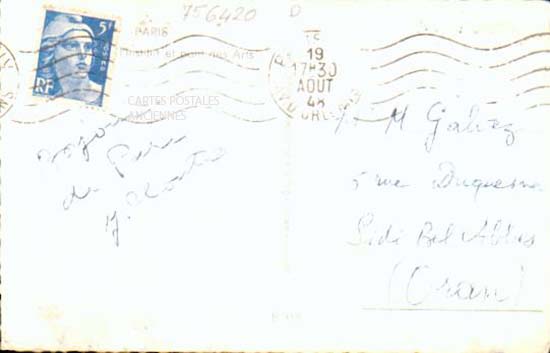 756420 D
5F
RF
PARIS
et pont des Arts
19
17H30
AOUT
48
CARTES POSTALES
ANCIENNES
de Paris
M Galvez
5 rue Duquesne
Sidi Bel Abbes
(Oran)